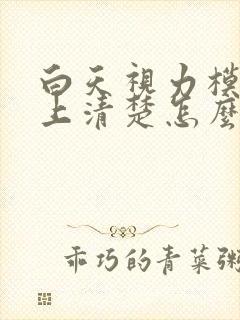 白天視力模
上清楚怎麼
乖巧的青菜粥